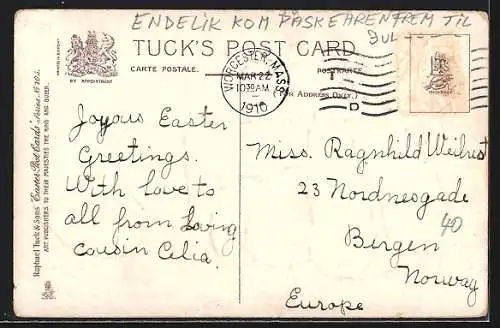 ENDELIK KOM PÅSKEHARENFREM TIL
JUL
TUCK'S POST CARD
CARTE POSTALE.
POSTKARTE.
BY APPOINTMENT
(FOR ADDRESS ONLY.)
WORCESTER, MASS.
MAR 22
1030AM
1910
D
Joyous Easter
Greetings.
With love to
all from loving
cousin Celia.
Miss. Ragnhild
23 Nordnesgade
40
Bergen
Norway
Europe
Raphael Tuck & Sons' "Easter Post Cards" Series
ART PUBLISHERS TO THEIR MAJESTIES THE KING AND QUEEN.